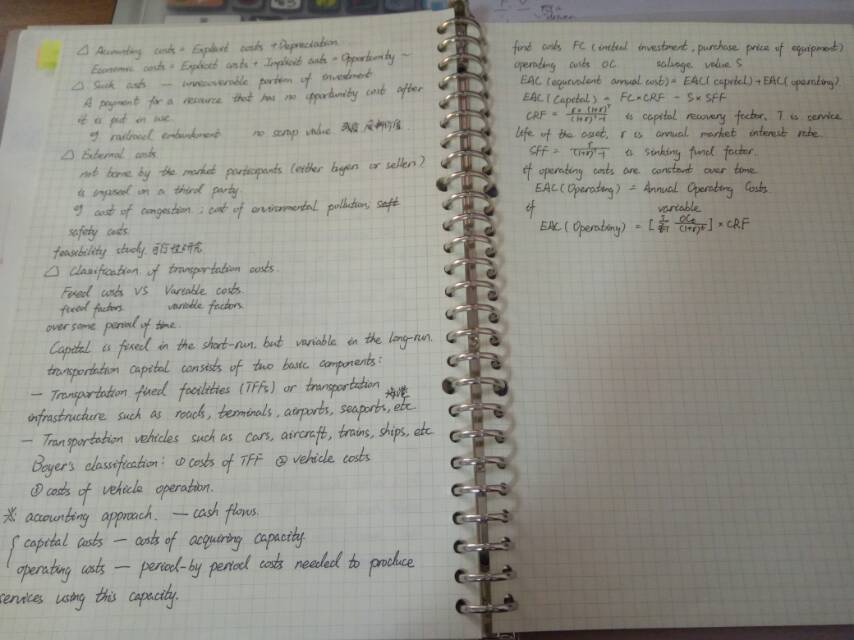 △ Accounting costs = Explicit costs + Depreciation
Economic costs = Explicit costs + Implicit costs = Opportunity ~
△ Sunk costs — unrecoverable portion of investment
A payment for a resource that has no opportunity cost after
it is put in use.
eg railroad embankment no scrap value
△ External costs.
not borne by the market participants (either buyers or sellers)
is imposed on a third party.
eg cost of congestion; cost of environmental pollution,
safety costs.
feasibility study. 可行性研究
△ Classification of transportation costs.
Fixed costs VS Variable costs.
fixed factors variable factors.
over some period of time.
Capital is fixed in the short-run, but variable in the long-run.
transportation capital consists of two basic components:
— Transportation fixed facilities (TFFs) or transportation
infrastructure such as roads, terminals, airports, seaports, etc
— Transportation vehicles such as cars, aircraft, trains, ships, etc
Boyer's classification: ① costs of TFF ② vehicle costs
③ costs of vehicle operation.
※ accounting approach. — cash flows.
{ capital costs — costs of acquiring capacity.
operating costs — period-by period costs needed to produce
services using this capacity.
first costs FC (initial investment, purchase price of equipment)
operating costs OC salvage value S
EAC (equivalent annual cost) = EAC (capital) + EAC (operating)
EAC (Capital) = FC × CRF - S × SFF
CRF = r×(1+r)^T / (1+r)^T-1 is capital recovery factor, T is service
life of the asset, r is annual market interest rate.
SFF = r / (1+r)^T-1 is sinking fund factor.
if operating costs are constant over time
EAC (Operating) = Annual Operating Costs
if variable
EAC (Operating) = [Σ OCt / (1+r)^t] × CRF